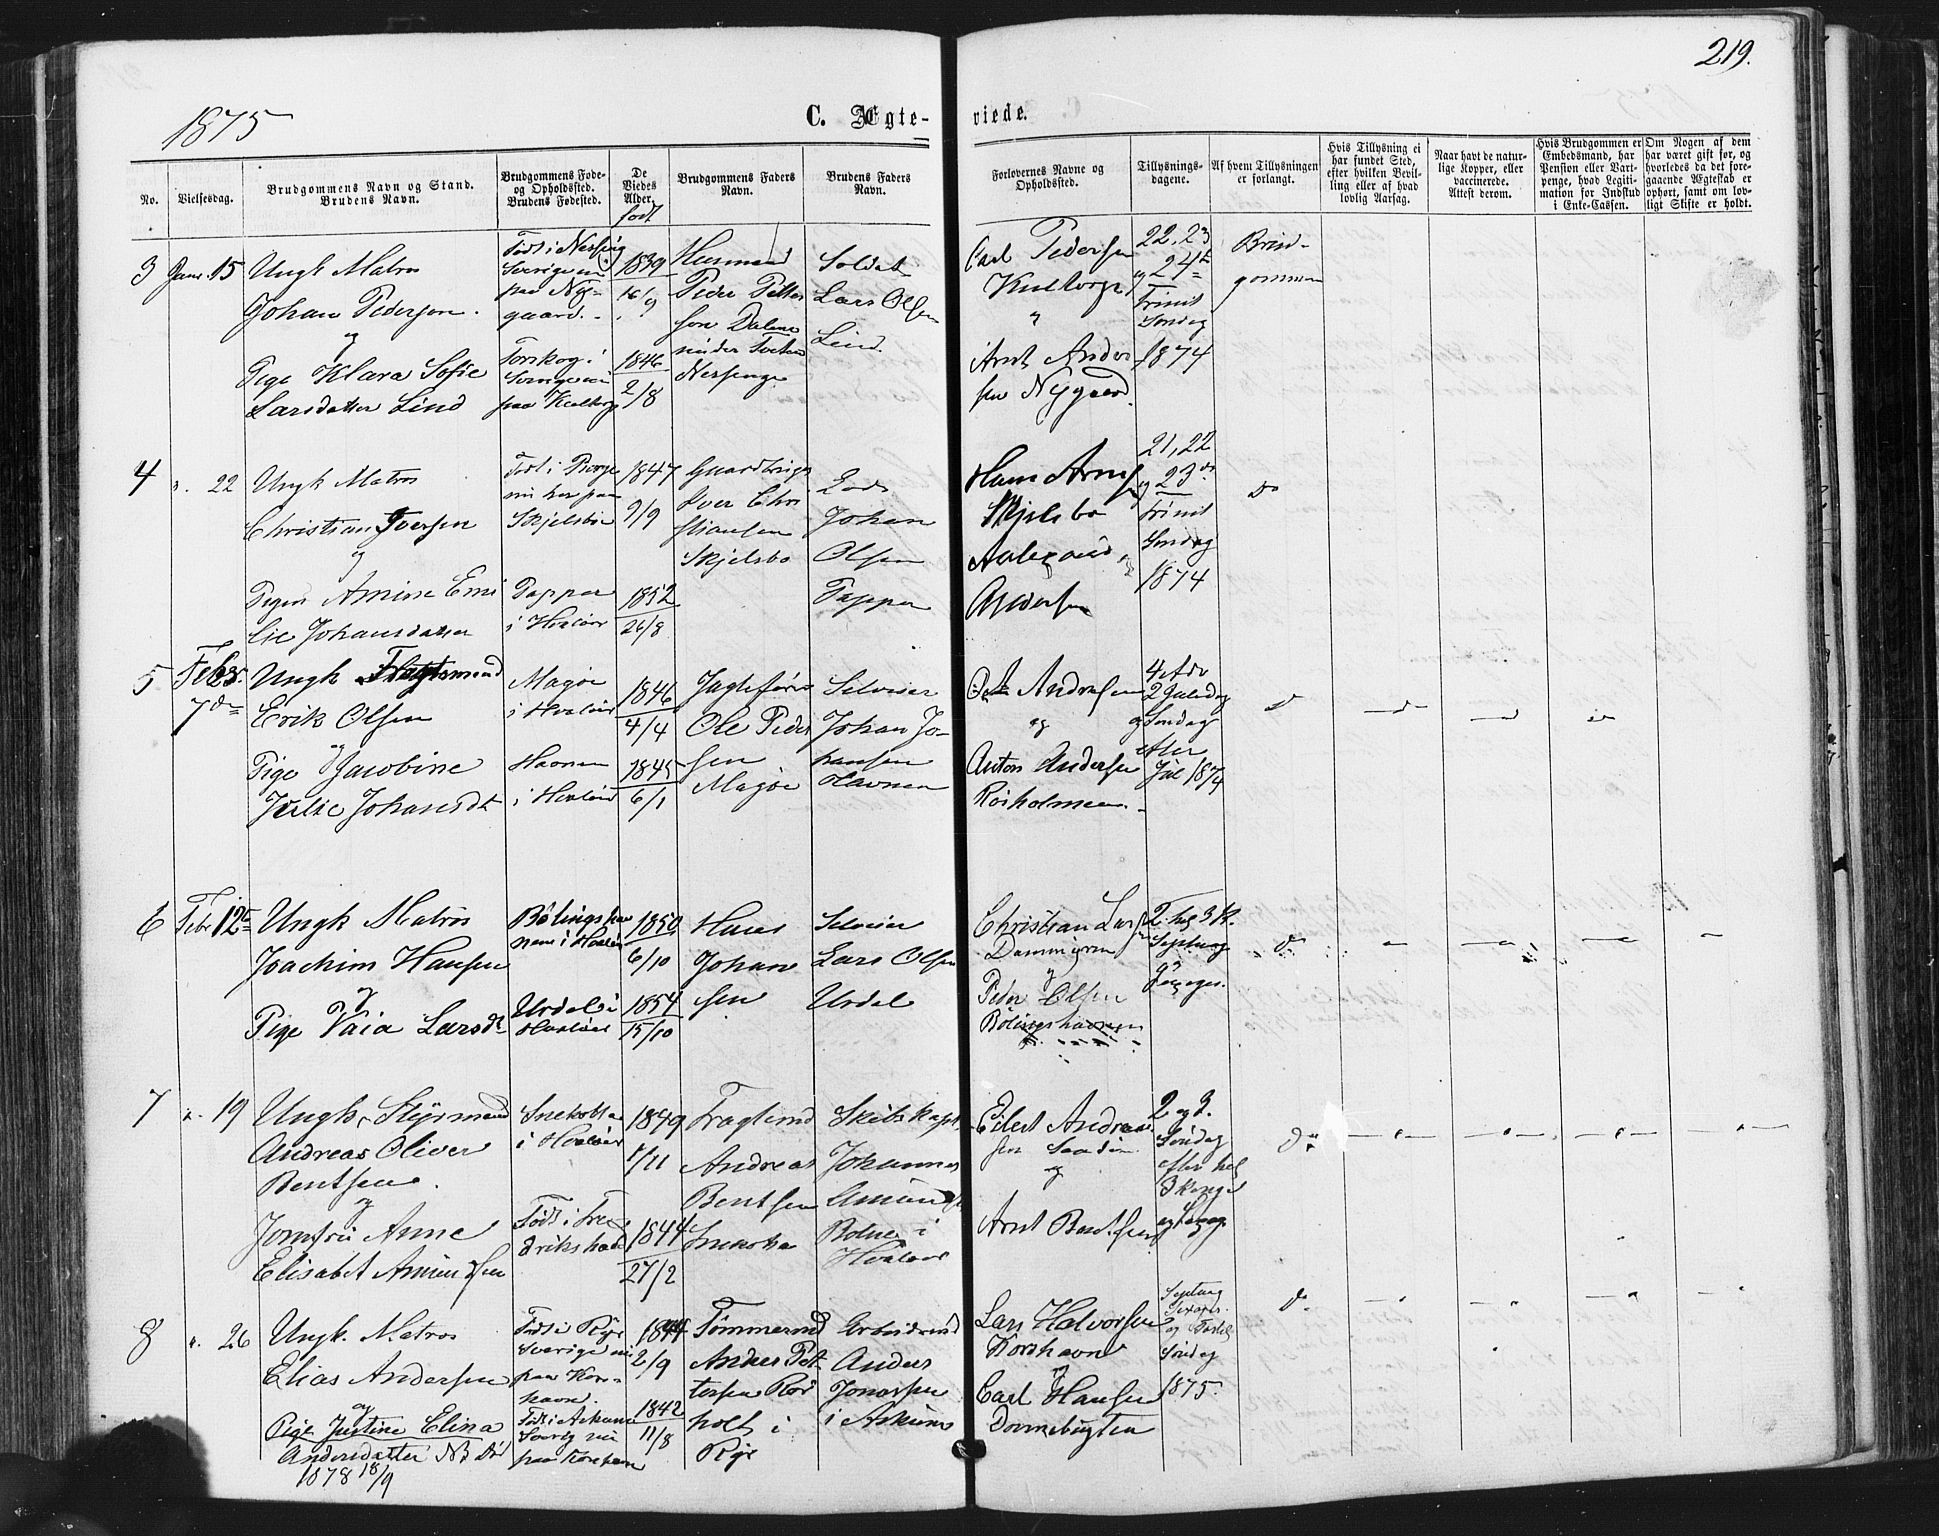 219.
1875
C. Ægte-
viede.
No.
Vielsesdag.
Brudgommens Navn og Stand.
Brudens Navn.
Brudgommens Føde-
og Opholdssted.
Brudens Fødested.
De
Viedes
Alder.
født
Brudgommens Faders
Navn.
Brudens Faders
Navn.
Forlovernes Navne og
Opholdssted.
Tillysnings-
dagene.
Af hvem Tillysningen
er forlangt.
Hvis Tillysning ei
har fundet Sted,
efter hvilken Bevil-
ling eller af hvad
lovlig Aarsag.
Naar havt de natur-
lige Kopper, eller
vaccinerede.
Attest derom.
Hvis Brudgommen er
Embedsmand, har
Pension eller Vart-
penge, hvad Legiti-
mation for Indskud
i Enke-Cassen.
Om Nogen af dem
har været gift før, og
hvorledes da det fore-
gaaende Ægteskab er
ophørt, samt om lov-
ligt Skifte er holdt.
3 Janr. 15
Ungk Matros
Johan Pedersen.
og
Pige Klara Sofie
Larsdatter Lind
Født i
Sverige
paa Ny-
gaard.
Torskog i
Sverige
paa
1839
16/9
1846
2/8
Husmand
Peder Petter
son Dalene
under
Soldat
Lars Olsen
Lind.
Carl Pedersen
og
Arnt Ander
sen Nygaard.
22, 23
og 24
Trinit
Søndag
1874
Brud-
gommen
4 " 22
Ungk Matros
Christian Iversen
og
Pigen Amine Emi
lie Johansdatter
Født i Borge
nu her paa
Skjelsbo
Papper
i Hvaløer
1847
9/9
1852
26/8
Iver Chri
stiansen
Skjelsbo
Lods
Johan
Olsen
Papper
Hans Arns
Skjelsbo
Andersen
21, 22
og 23de
Trinit
Søndag
1874
do
5 Febr.
7de
Ungk Fragtemand
Erik Olsen
og
Pige Jacobine
Julie Johansdt
Magøe
i Hvaløer
Havnen
i Hvaløer
1846
4/4
1845
6/1
Jagtefører
Ole Peder
sen
Magøe
Selveier
Johan Jo-
hansen
Havnen
Andersen
og
Anton Andersen
Røsholmen.
4 Adv
2 Juledag
og Søndag
efter
Jul 1874
6 Febr 12te
Ungk Matros
Joachim Hansen
og
Pige Vaia Larsdt
Bølingshav
nen i Hvaløer
Urdal i
Hvaløer
1850
6/10
1854
15/10
Hans
Johan
sen
Selveier
Lars Olsen
Urdal
Christian Lars
og
Peder Olsen
Bølingshavnen
2. hel 3 K.
Septuag
og
7 " 19
Ungk. Styrmand
Andreas Oliver
Bentsen.
og
Jomfru Anne
Elisabet Amundsen
i Hvaløer
Født i Fre
drikshald
1849
1/11
1844
27/2
Fragtemd
Andreas
Bentsen
Skibskapt.
Johannes
Amunds
i
Hvaløer
Eilert Andrea
sen
og
Arnt Bentsen
2 og 3.
Søndag
efter hel
3 Konge
8 " 26
Ungk. Matros
Elias Andersen
og
Pige Justine Elina
Andersdatter NB Død
1878 18/9
Født i
Sverige nu
paa Kors-
havn.
Født i
Sverig nu
paa Korshavn
1844
2/9
1842
11/8
Tømmermd
Andres Pet-
tersen
holt i
Arbeidsmd
Anders
Jonassen
i Askum
Lars Halvorsen
Korshavn
og
Carl Hansen
Dommebugten
Septuag
Sexages.
og Fastel
Søndag
1875.